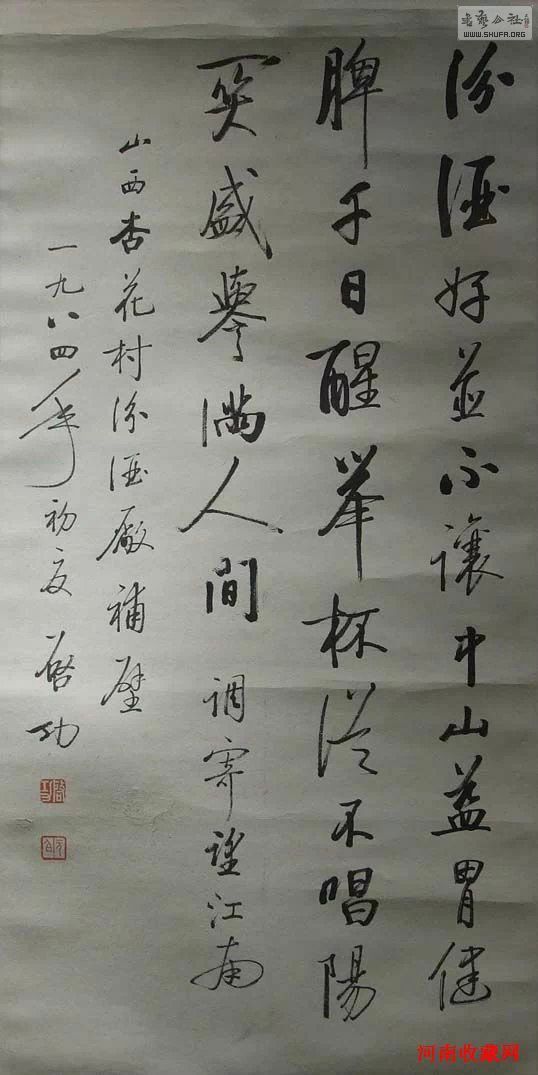 汾酒好並不讓中山益胃健
脾千日醒舉杯從不唱陽
關盛譽滿人間 調寄望江南
山西杏花村汾酒廠補壁
一九八四年初夏 啓功
啓功
元白
書藝公社
WWW.SHUFA.ORG
河南收藏网